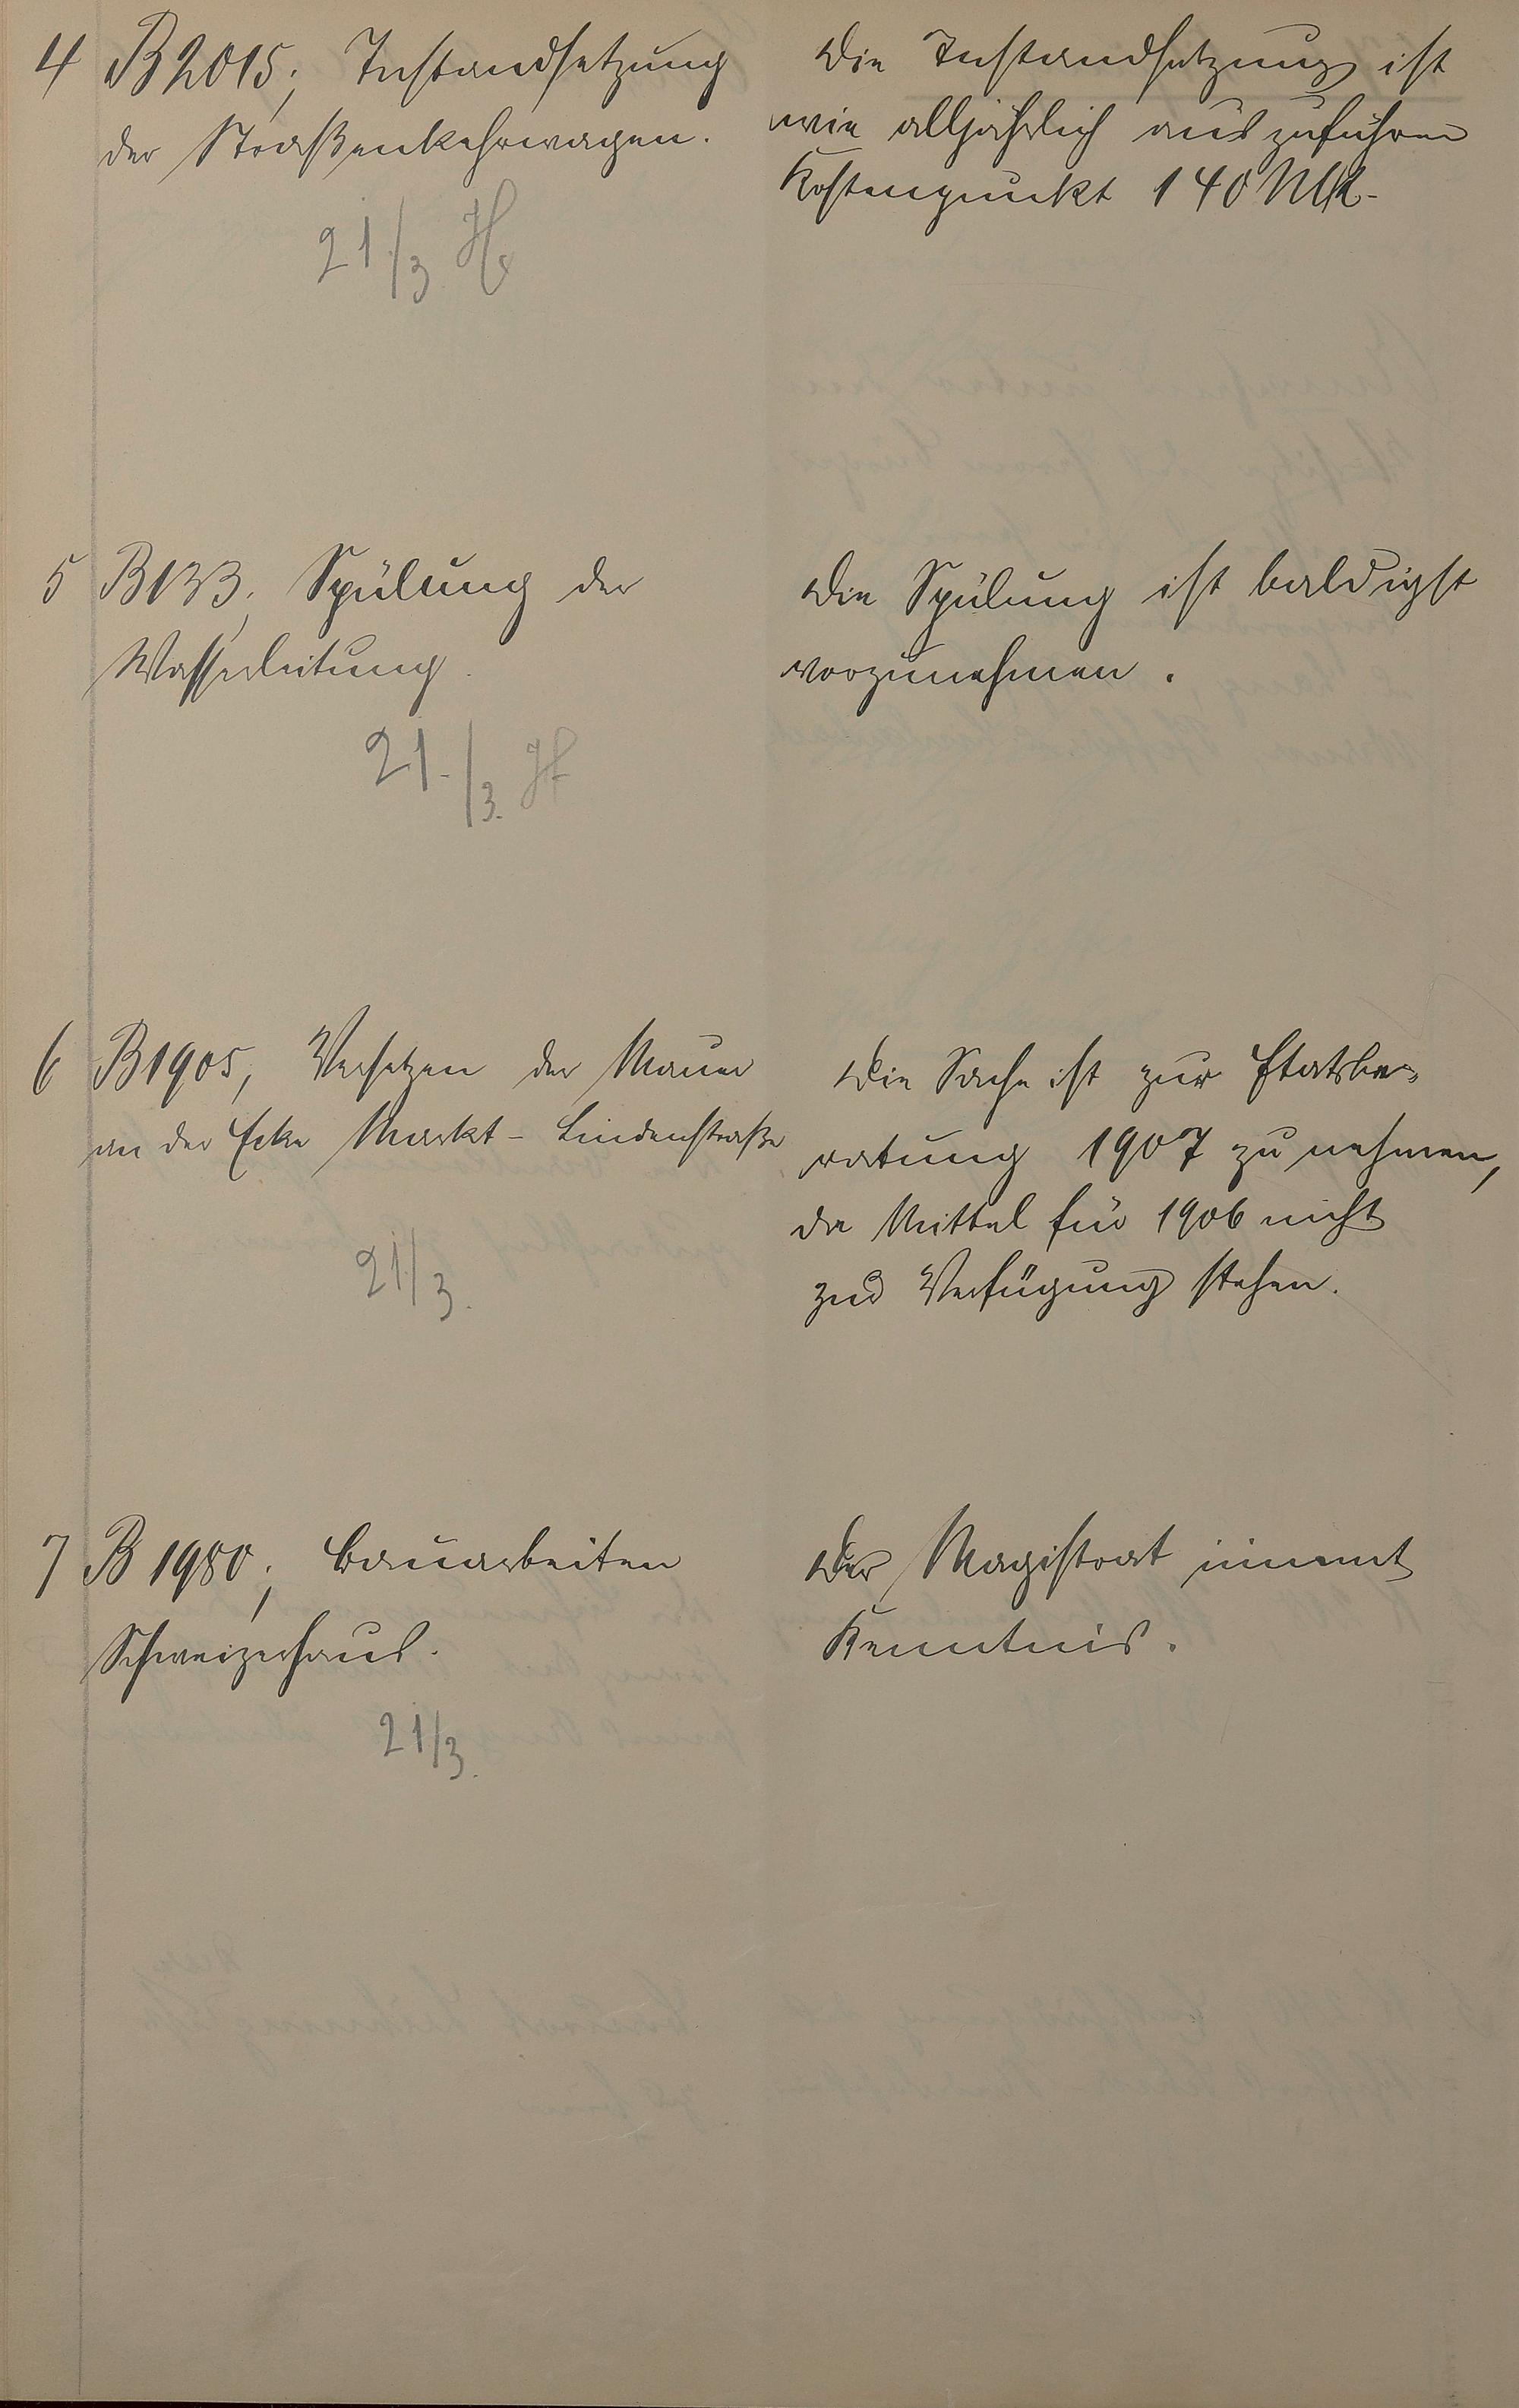 4 B 2015; Instandsetzung
der Straßenkehrwagen.
21/3 H
Die Instandsetzung ist
wie alljährlich auszuführen
Kostenpunkt 140 Mk-
5 B 133, Spülung der
Wasserleitung.
21./3. H
Die Spülung ist baldigst
vorzunehmen.
6 B 1905, Versetzen der Mauer
an der Ecke Markt- Lindenstraße
21/3.
Die Sache ist zur Etatsbe-
ratung 1907 zu nehmen,
da Mittel für 1906 nicht
zur Verfügung stehen.
7 B 1980; Bauarbeiten
Schweizerhaus.
21/3.
Der Magistrat nimmt
Kenntnis.